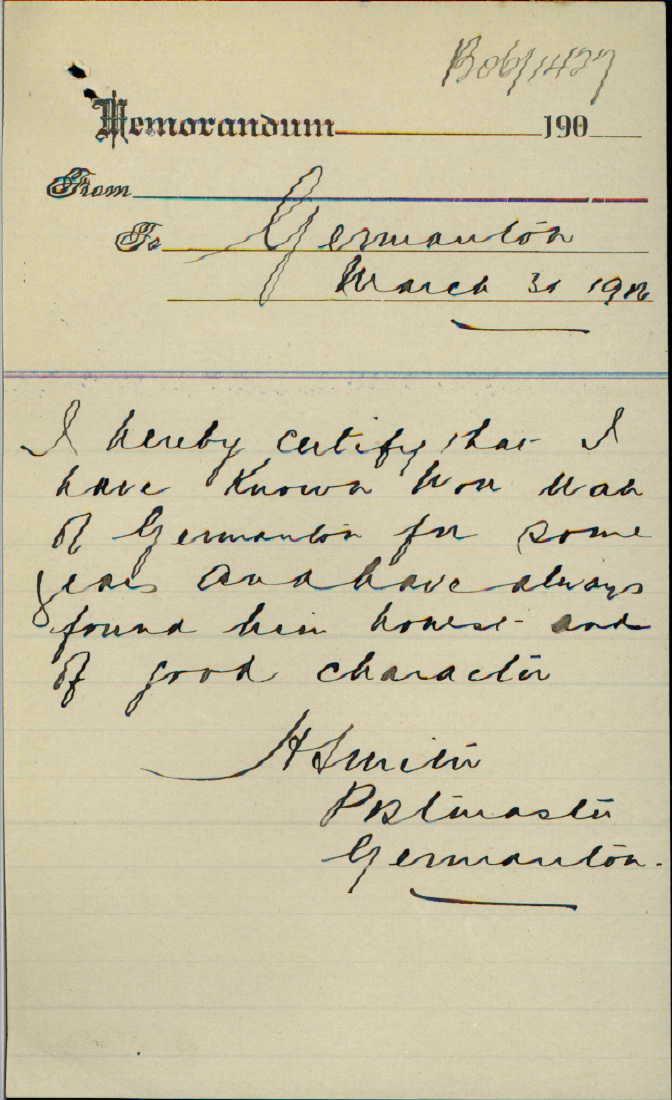 Bob/1427
Memorandum 190
From
To Germanton
March 31 190
I hereby certify that I
have Known Won Wah
of Germanton for some
years and have always
found him honest and
of good character
H Smith
Postmaster
Germanton.